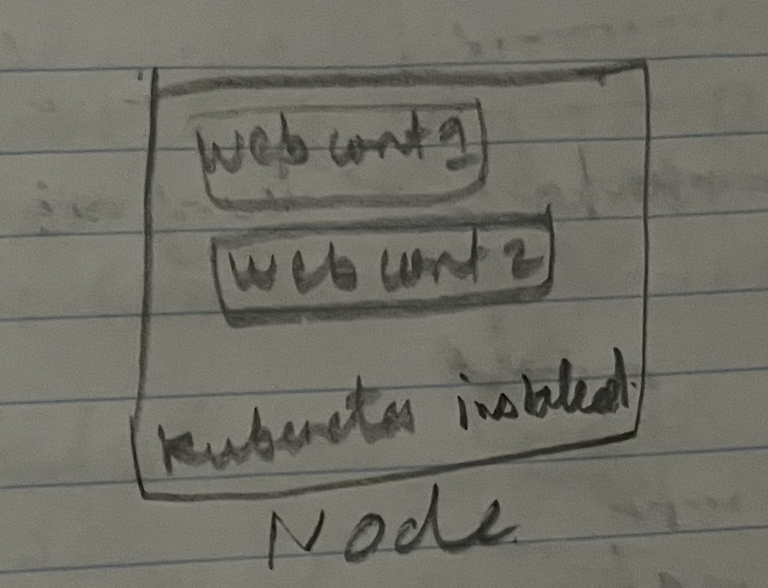 Web cont 1
Web cont 2
Kubernetes installed.
Node